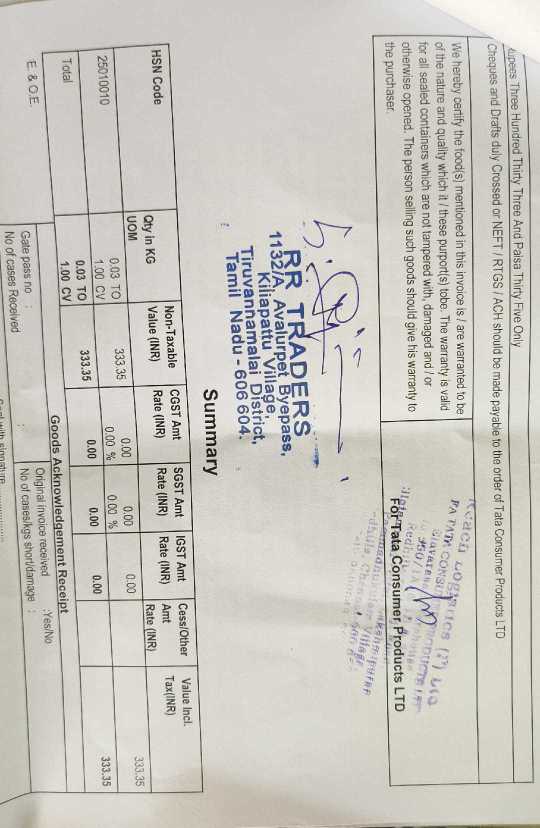 Rupees Three Hundred Thirty Three And Paisa Thirty Five Only
Cheques and Drafts duly Crossed or NEFT / RTGS / ACH should be made payable to the order of Tata Consumer Products LTD
We hereby certify the food(s) mentioned in this invoice is / are warranted to be
of the nature and quality which it / these purport(s) tobe. The warranty is valid
for all sealed containers which are not tampered with, damaged and / or
otherwise opened. The person selling such goods should give his warranty to
the purchaser.
For Tata Consumer Products LTD
RR TRADERS
1132/A, Avalurpet Byepass,
Kiliapattu Village,
Tiruvannamalai District,
Tamil Nadu - 606 604.
Summary
HSN Code Qty in KG UOM Non-Taxable Value (INR) CGST Amt Rate (INR) SGST Amt Rate (INR) IGST Amt Rate (INR) Cess/Other Amt Rate (INR) Value Incl. Tax(INR)
25010010 0.03 TO 333.35 0.00 0.00 0.00 333.35
1.00 CV 0.00 % 0.00 %
Total 0.03 TO 333.35 0.00 0.00 0.00 333.35
1.00 CV
E. & O.E.
Goods Acknowledgement Receipt
Gate pass no : Original invoice received :Yes/No
No of cases Received : No of cases/kgs short/damage :